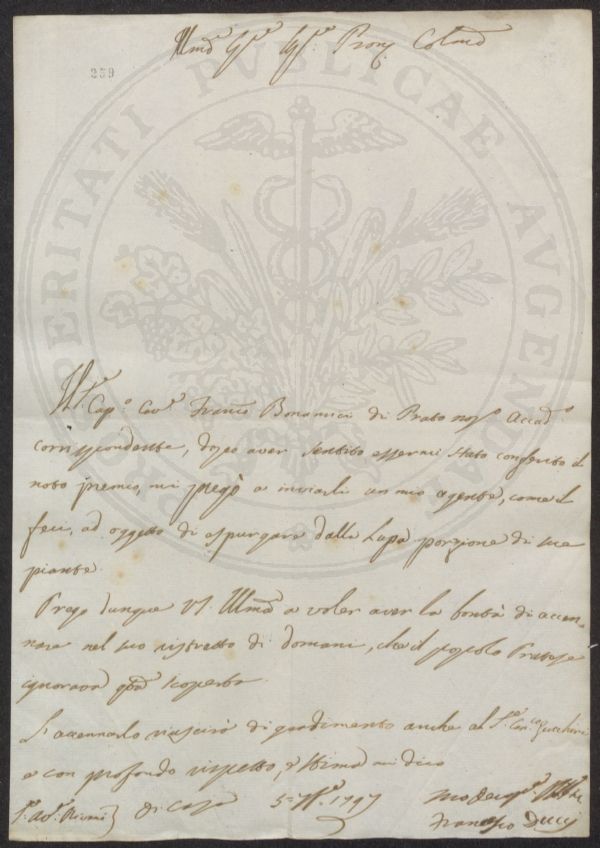 259
Illmo Sigre Sigre Prone Colmo
PROSPERITATI PUBLICAE AUGENDAE
Il Sr. Capo. Cavr. Franco Bonamici di Prato nosº Accadº
corrispondente, dopo aver sentito essermi stato conferito il
noto premio, mi pregò a inviarli un mio agente, come il
feci, ad oggetto di espurgare dalla Lupa porzione di sue
piante
Prego dunque VS Illma a voler aver la bontà di accen-
nare nel suo ristretto di domani, che il popolo Pratese
ignorava qta scoperta
L'accennarlo riuscirà di gradimento anche al Sr. Canco Zucchini
e con profondo rispetto, e stima mi dico
Di Casa 5 1797
Francesco Ducci